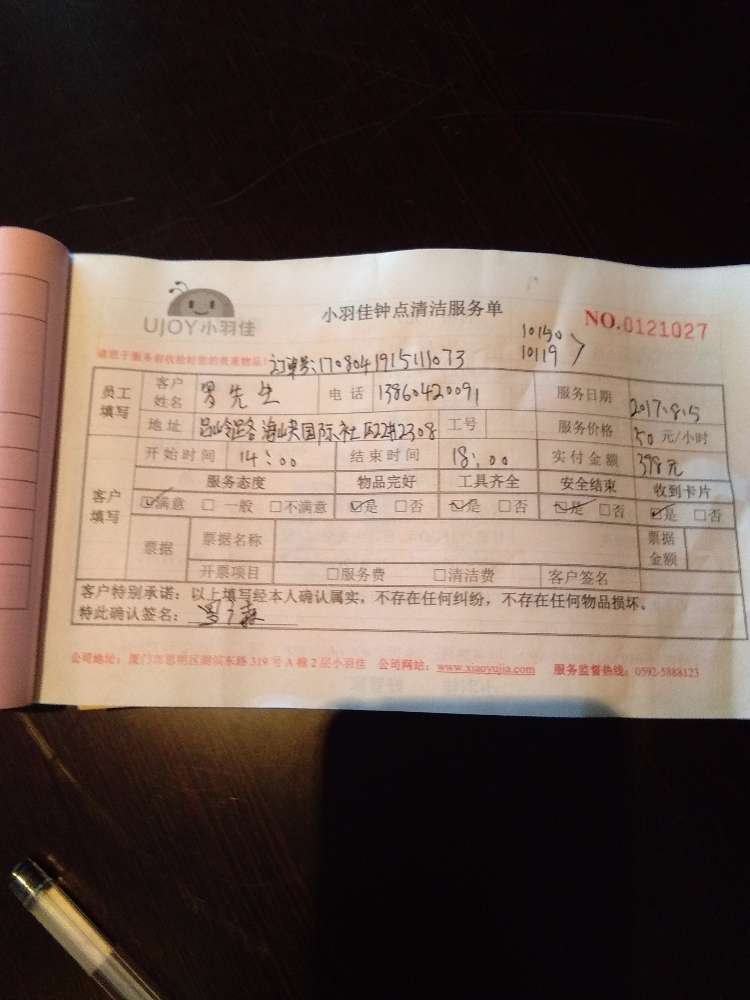 UJOY小羽佳
小羽佳钟点清洁服务单
NO.0121027
10150
10119
请您于服务前收拾好您的贵重物品！
订单号:170804191511073
员工填写 客户姓名 罗先生 电话 13860420091 服务日期 2017.8.5
地址 海峡国际社区22#2308 工号 服务价格 50 元/小时
开始时间 14:00 结束时间 18:00 实付金额 398元
客户填写 服务态度 物品完好 工具齐全 安全结束 收到卡片
☑满意 □一般 □不满意 ☑是 □否 ☑是 □否 ☑是 □否 ☑是 □否
票据 票据名称 票据金额
开票项目 □服务费 □清洁费 客户签名
客户特别承诺：以上填写经本人确认属实，不存在任何纠纷，不存在任何物品损坏。
特此确认签名：
公司地址：厦门市思明区湖滨东路 319 号 A 栋 2 层小羽佳 公司网站：www.xiaoyujia.com 服务监督热线：0592-5888123